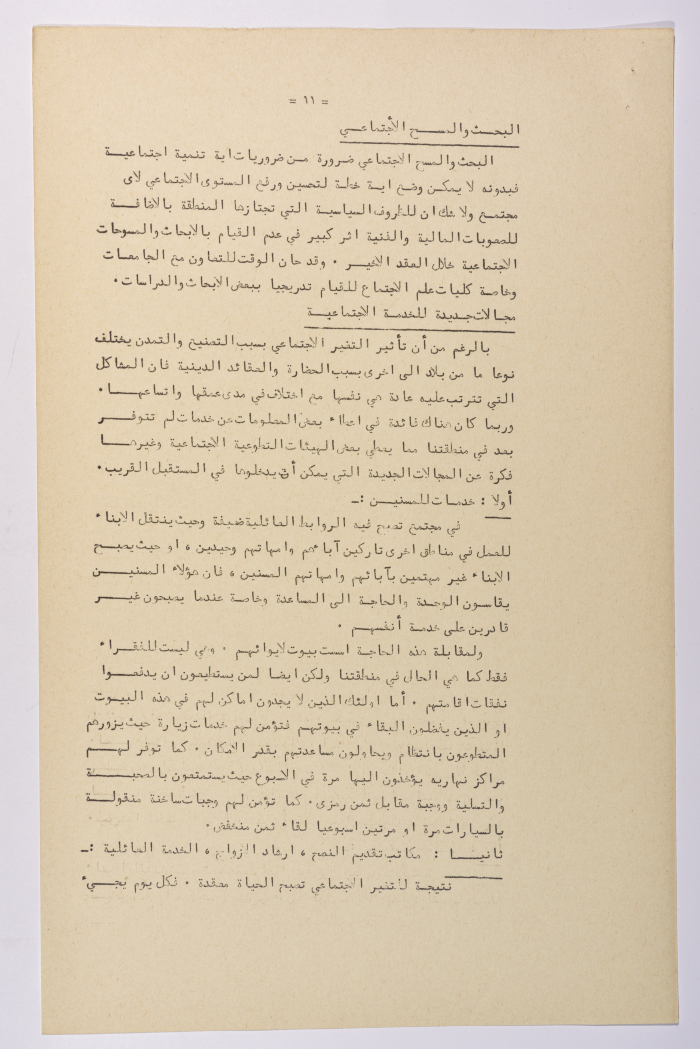 = ١١ =
البحث والمسح الأجتماعي
البحث والمسح الاجتماعي ضرورة من ضروريات اية تنمية اجتماعية
فبدونه لا يمكن وضع اية خطة لتحسين ورفع المستوى الاجتماعي لاى
مجتمع ولا شك ان للظروف السياسية التي تجتازها المنطقة بالاضافة
للصعوبات المالية والفنية اثر كبير في عدم القيام بالابحاث والمسوحات
الاجتماعية خلال العقد الاخير . وقد حان الوقت للتعاون مع الجامعات
وخاصة كليات علم الاجتماع للقيام تدريجيا ببعض الابحاث والدراسات.
مجالات جديدة للخدمة الاجتماعية
بالرغم من أن تأثير التغير الاجتماعي بسبب التصنيع والتمدن يختلف
نوعا ما من بلاد الى اخرى بسبب الحضارة والعقائد الدينية فان المشاكل
التي تترتب عليه عادة هي نفسها مع اختلاف في مدى عمقها واتساعها .
وربما كان هناك فائدة في اعطاء بعض المعلومات عن خدمات لم تتوفر
بعد في منطقتنا مما يعطي بعض الهيئات التطوعية الاجتماعية وغيرها
فكرة عن المجالات الجديدة التي يمكن أن يدخلوها في المستقبل القريب .
أولا : خدمات للمسنين :ـ
في مجتمع تصبح فيه الروابط العائلية ضعيفة وحيث ينتقل الابناء
للعمل في مناطق اخرى تاركين آباءهم وامهاتهم وحيدين ، او حيث يصبح
الابناء غير مهتمين بآبائهم وامهاتهم المسنين ، فان هؤلاء المسنين
يقاسون الوحدة والحاجة الى المساعدة وخاصة عندما يصبحون غير
قادرين على خدمة أنفسهم .
ولمقابلة هذه الحاجة اسست بيوت لايوائهم . وهي ليست للفقراء
فقط كما هي الحال في منطقتنا ولكن ايضا لمن يستطيعون ان يدفعوا
نفقات اقامتهم . أما اولئك الذين لا يجدون اماكن لهم في هذه البيوت
او الذين يفضلون البقاء في بيوتهم فتؤمن لهم خدمات زيارة حيث يزورهم
المتطوعون بانتظام ويحاولون مساعدتهم بقدر الامكان . كما توفر لهم
مراكز نهاريه يؤخذون اليها مرة في الاسبوع حيث يستمتعون بالصحبة
والتسلية ووجبة مقابل ثمن رمزى . كما تؤمن لهم وجبات ساخنة منقولة
بالسيارات مرة او مرتين اسبوعيا لقاء ثمن منخفض.
ثانيا : مكاتب تقديم النصح ، ارشاد الزواج ، الخدمة العائلية :ـ
نتيجة للتغير الاجتماعي تصبح الحياة معقدة . فكل يوم يجيء